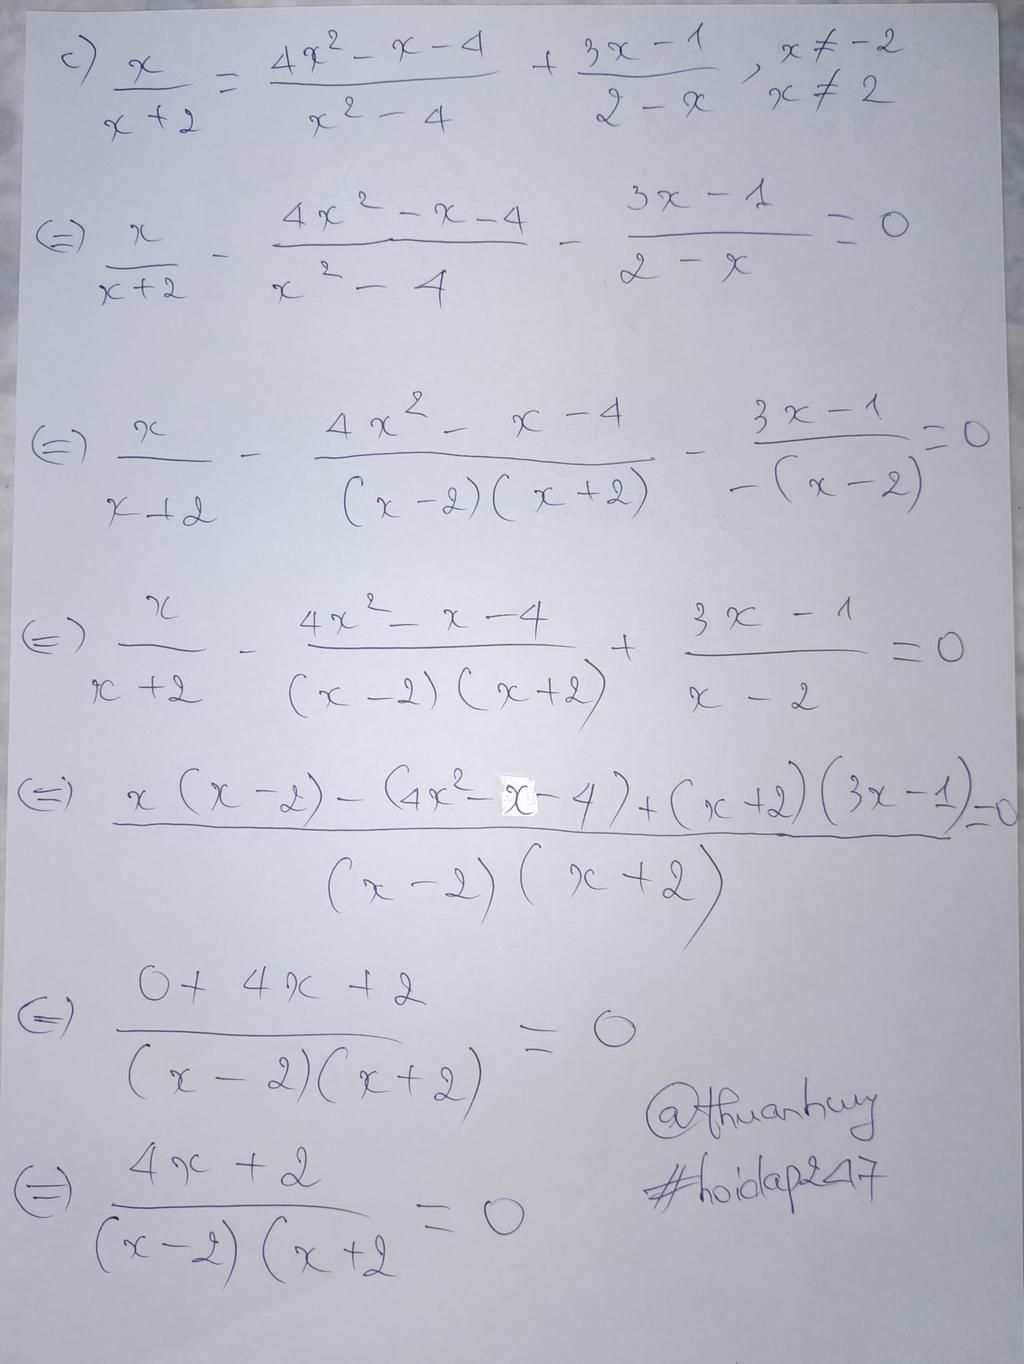 c) x/(x+2) = (4x² - x - 4)/(x² - 4) + (3x - 1)/(2 - x), x ≠ -2
x ≠ 2
(=) x/(x+2) - (4x² - x - 4)/(x² - 4) - (3x - 1)/(2 - x) = 0
(=) x/(x+2) - (4x² - x - 4)/((x - 2)(x + 2)) - (3x - 1)/(-(x - 2)) = 0
(=) x/(x+2) - (4x² - x - 4)/((x - 2)(x + 2)) + (3x - 1)/(x - 2) = 0
(=) (x(x - 2) - (4x² - x - 4) + (x + 2)(3x - 1))/((x - 2)(x + 2)) = 0
(=) (0 + 4x + 2)/((x - 2)(x + 2)) = 0
(=) (4x + 2)/((x - 2)(x + 2) = 0
@thuanhuy
#hoidap247